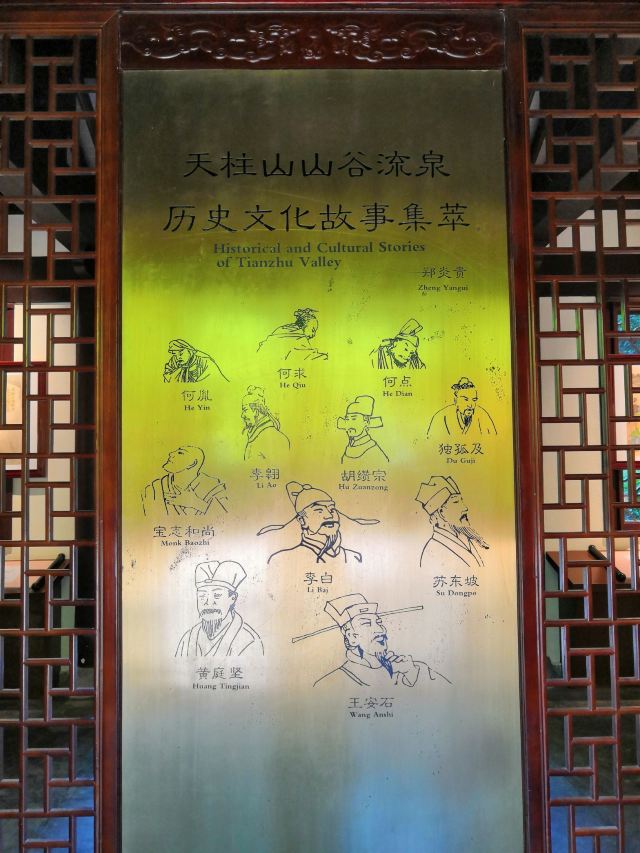 天柱山山谷流泉
历史文化故事集萃
Historical and Cultural Stories
of Tianzhu Valley
—郑炎贵
Zheng Yangui
何胤
He Yin
何求
He Qiu
何点
He Dian
李翱
Li Ao
胡缵宗
Hu Zuanzong
独孤及
Du Guji
宝志和尚
Monk Baozhi
李白
Li Bai
苏东坡
Su Dongpo
黄庭坚
Huang Tingjian
王安石
Wang Anshi